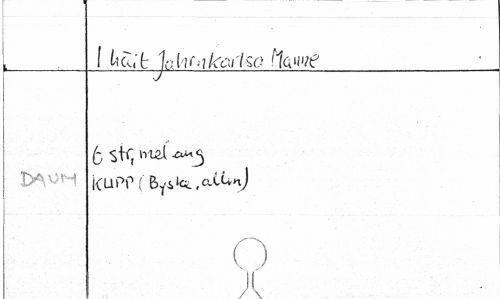 I håit Jahrnkarlsa Manne
6 str, mel ang
DAUM KUPP (Byske, allm)